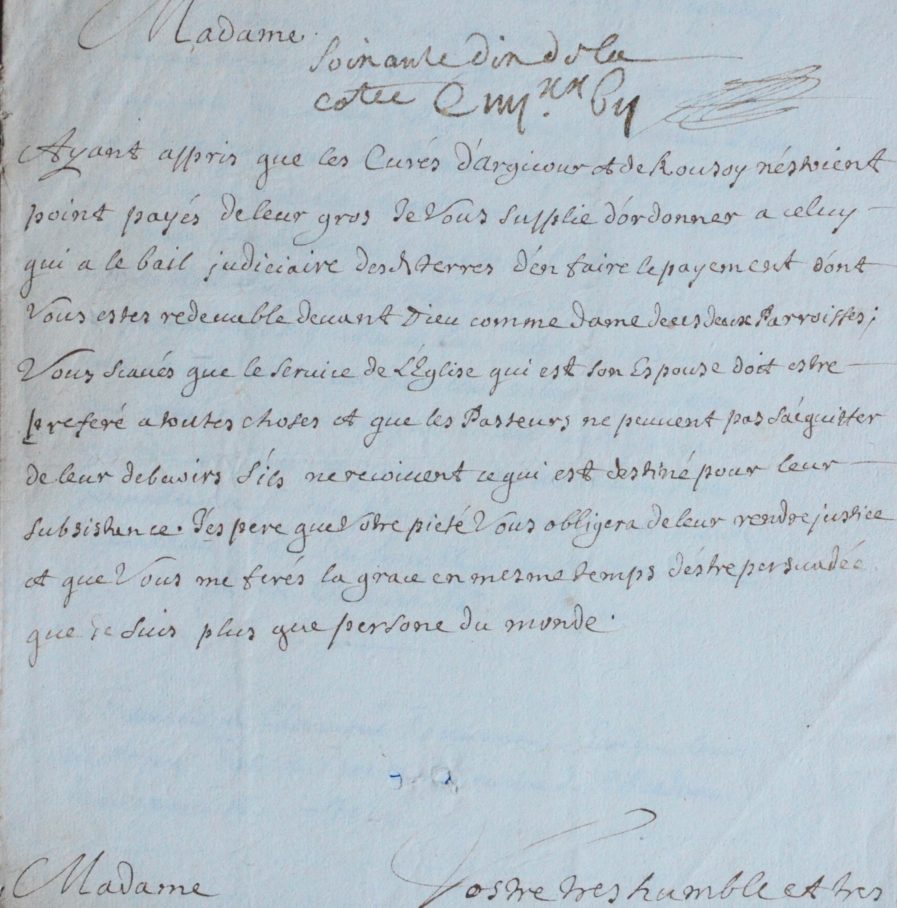 Madame.
Soixante dix de la
cotte C iiij.xx
Ayant appris que les Curés d'argicour et de Rousoy n'éstoient
point payés de leur gros Je Vous supplie d'ordonner a celuy
qui a le bail judiciaire desd terres d'en faire le payement dont
Vous estes redeuable deuant Dieu comme dame de ces deux Parroisses;
Vous scaués que le seruice de L'Eglise qui est son Espouse doit estre
preferé a toutes choses et que les Pasteurs ne peuuent pas s'aiquitter
de leur debuoirs s'ils ne recoiuent ce qui est destiné pour leur
subsistence. J'espere que Votre pieté Vous obligera de leur rendre justice
et que Vous me ferés la grace en mesme temps d'éstre persuadée
que Je suis plus que persone du monde.
Madame Vostre tres humble et tres